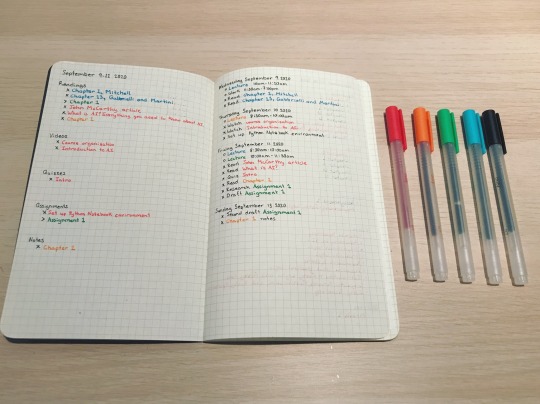 September 9-11 2020
Readings
x Chapter 1, Mitchell
x Chapter 13, Gabbrielli and Martini
> Chapter 1
x John McCarthy article
x What is AI? Everything you need to know about AI
x Chapter 1
Videos
x Course organisation
x Introduction to AI
Quizzes
x Intro
Assignments
x Set up Python Notebook environment
> Assignment 1
Notes
x Chapter 1
Wednesday September 9 2020
x Read Chapter 1, Mitchell
x Read Chapter 13, Gabbrielli and Martini
Thursday September 10 2020
x Watch course organisation
x Watch Introduction to AI
x Set up Python Notebook environment
Friday September 11 2020
o Lecture
o Lecture
x Read John McCarthy article
x Read What is AI?
x Quiz Intro
x Read Chapter 1
x Research Assignment 1
> Draft Assignment 1
Sunday September 13 2020
x Second draft Assignment 1
x Chapter 1 notes